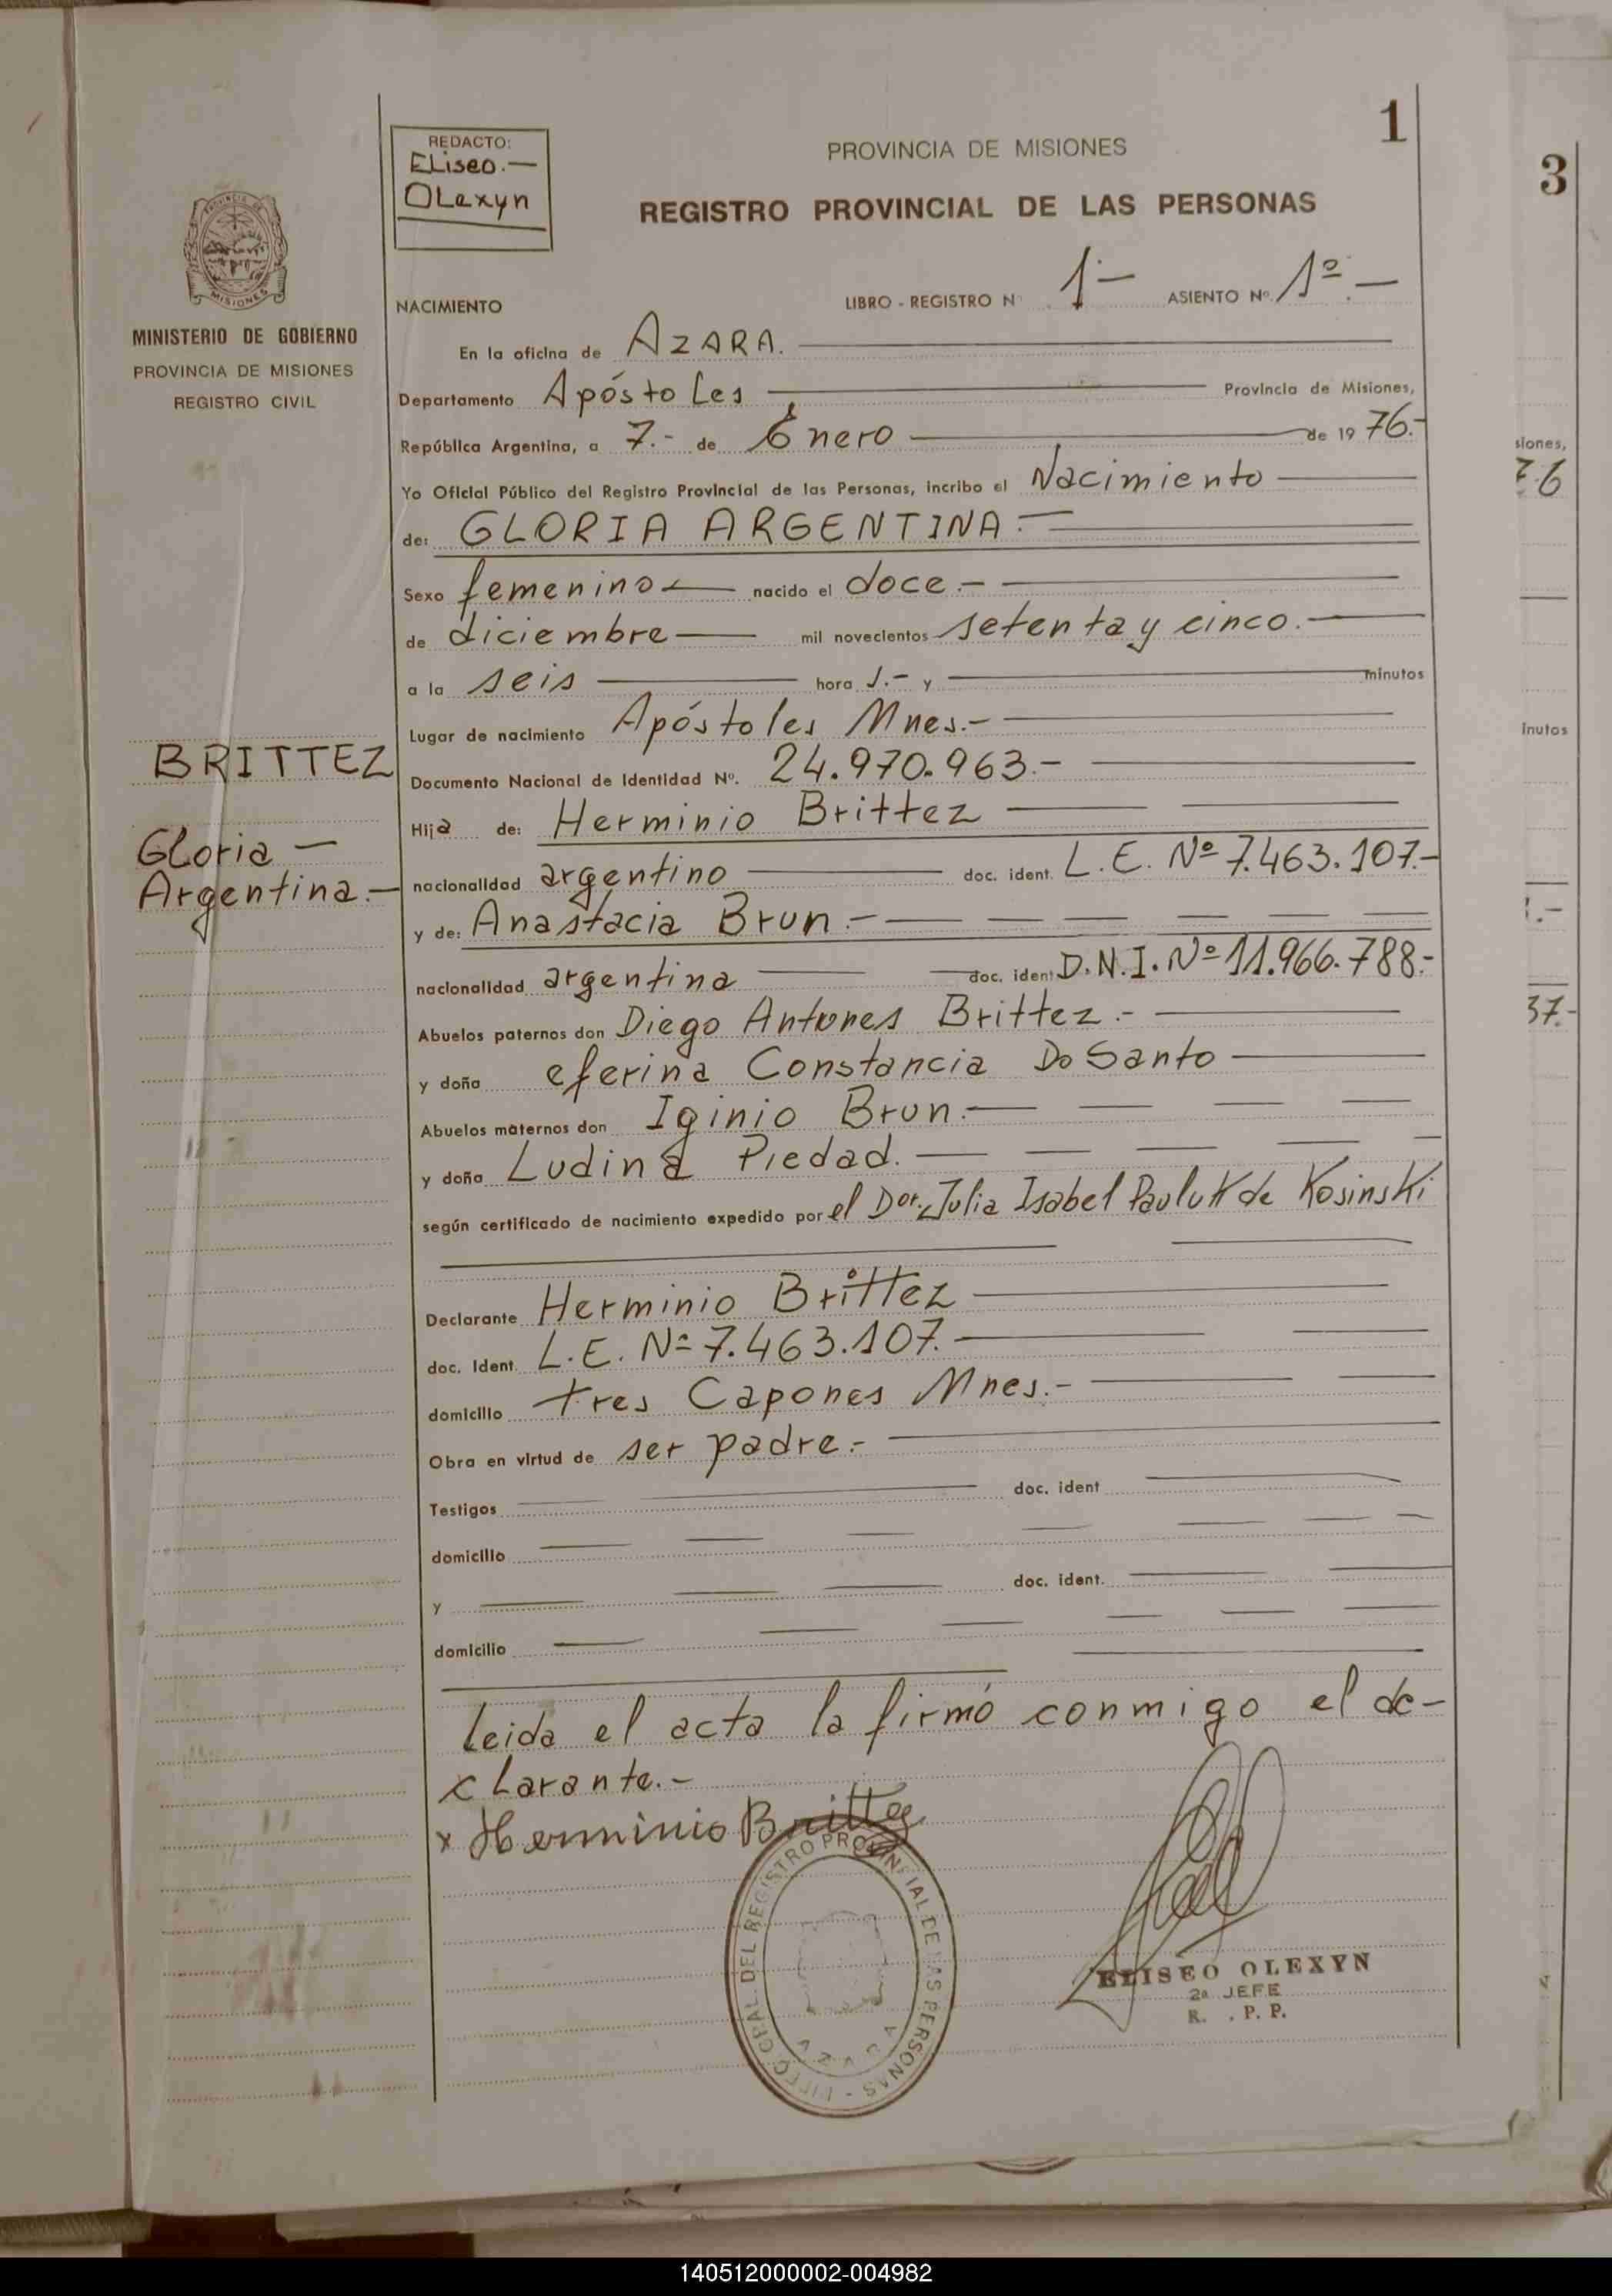 1
3
REDACTO:
ELiseo.—
OLexyn
PROVINCIA DE MISIONES
REGISTRO PROVINCIAL DE LAS PERSONAS
MISIONES
MINISTERIO DE GOBIERNO
PROVINCIA DE MISIONES
REGISTRO CIVIL
NACIMIENTO
LIBRO - REGISTRO N° 1- ASIENTO Nº. 1º.-
En la oficina de AZARA.
Departamento ApóstoLes Provincia de Misiones,
República Argentina, a 7.- de Enero de 19 76.-
Yo Oficial Público del Registro Provincial de las Personas, incribo el Nacimiento
de: GLORIA ARGENTINA.-
Sexo femenino nacido el doce.-
de diciembre mil novecientos setenta y cinco.-
a la seis hora s.- y minutos
Lugar de nacimiento Apóstoles Mnes.-
BRITTEZ
Gloria —
Argentina.—
Documento Nacional de Identidad Nº. 24.970.963.-
Hija de: Herminio Brittez
nacionalidad argentino doc. ident. L.E. Nº 7.463.107.-
y de: Anastacia Brun.-
nacionalidad argentina doc. ident D.N.I. Nº 11.966.788.-
Abuelos paternos don Diego Antones Brittez.-
y doña eferina Constancia Do Santo
Abuelos maternos don Iginio Brun.-
y doña Ludina Piedad.
según certificado de nacimiento expedido por el Dor. Julia Isabel de Kosinski
Declarante Herminio Brittez
doc. Ident. L.E. Nº 7.463.107.
domicilio tres Capones Mnes.-
Obra en virtud de ser padre.-
Testigos doc. ident
domicilio
y doc. ident.
domicilio
Leida el acta la firmó conmigo el de-
cLarante.-
x Herminio Brittez
REGISTRO PROVINCIAL DE LAS PERSONAS
ELISEO OLEXYN
2º JEFE
R. . P. P.
siones,
76
inutos
37.-
140512000002-004982